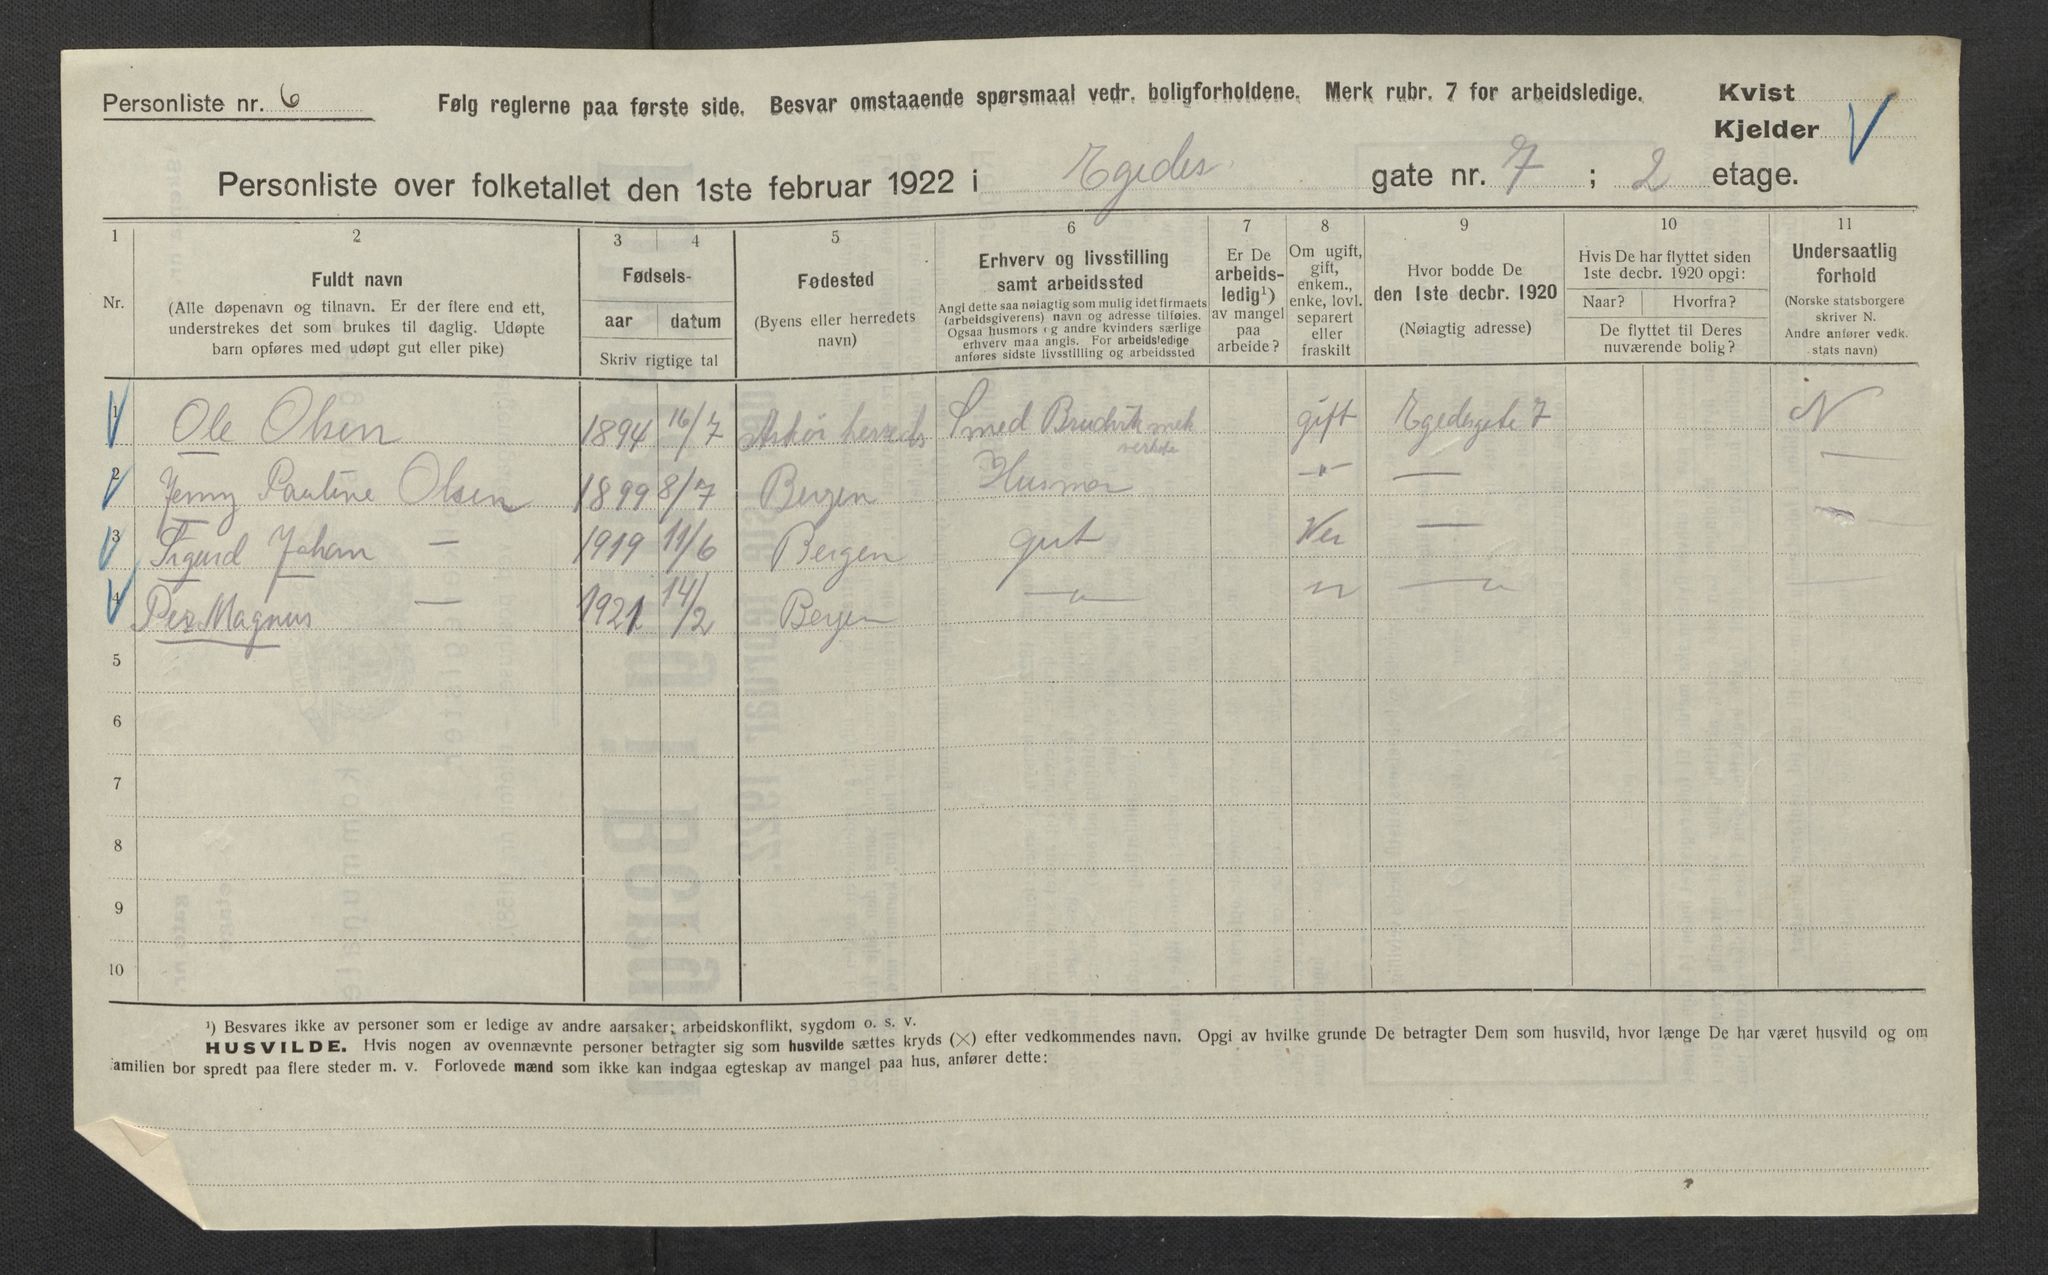 Personliste nr. 6
Følg reglerne paa første side. Besvar omstaaende spørsmaal vedr. boligforholdene. Merk rubr. 7 for arbeidsledige.
Kvist
Kjelder V
Personliste over folketallet den 1ste februar 1922 i Egedes gate nr. 7 ; 2 etage.
1 2 3 4 5 6 7 8 9 10 11
Nr.
Fuldt navn
(Alle døpenavn og tilnavn. Er der flere end ett,
understrekes det som brukes til daglig. Udøpte
barn opføres med udøpt gut eller pike)
Fødsels-
aar datum
Skriv rigtige tal
Fødested
(Byens eller herredets
navn)
Erhverv og livsstilling
samt arbeidssted
Angi dette saa nøiagtig som mulig idet firmaets
(arbeidsgiverens) navn og adresse tilføies.
Ogsaa husmors og andre kvinders særlige
erhverv maa angis. For arbeidsledige
anføres sidste livsstilling og arbeidssted
Er De
arbeids-
ledig¹)
av mangel
paa
arbeide?
Om ugift,
gift,
enkem.,
enke, lovl.
separert
eller
fraskilt
Hvor bodde De
den 1ste decbr. 1920
(Nøiagtig adresse)
Hvis De har flyttet siden
1ste decbr. 1920 opgi:
Naar? Hvorfra?
De flyttet til Deres
nuværende bolig?
Undersaatlig
forhold
(Norske statsborgere
skriver N.
Andre anfører vedk.
stats navn)
1 Ole Olsen 1894 16/7 Askøi herreds Smed Brudvik mek gift Egedesgate 7 N
2 Jenny Pauline Olsen 1899 8/7 Bergen Husmor -"- — —
3 Sigurd Johan — 1919 11/6 Bergen gut — —
4 Per Magnus — 1921 14/2 Bergen —"— " —"— —
5
6
7
8
9
10
¹) Besvares ikke av personer som er ledige av andre aarsaker; arbeidskonflikt, sygdom o. s. v.
HUSVILDE. Hvis nogen av ovennævnte personer betragter sig som husvilde sættes kryds (×) efter vedkommendes navn. Opgi av hvilke grunde De betragter Dem som husvild, hvor længe De har været husvild og om
amilien bor spredt paa flere steder m. v. Forlovede mænd som ikke kan indgaa egteskap av mangel paa hus, anfører dette: